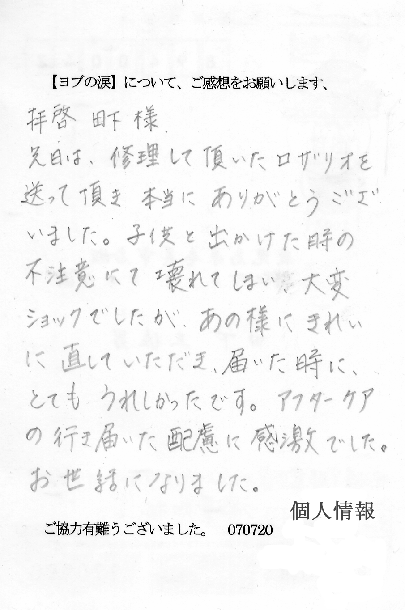 【ヨブの涙】について、ご感想をお願いします、
拝啓 田下 様
先日は、修理して頂いたロザリオを
送って頂き 本当に ありがとうござ
いました。子供と出かけた時の
不注意にて 壊れてしまい、大変
ショックでしたが、あの様に きれい
に 直していただき、届いた時に、
とても うれしかったです。アフターケア
の行き届いた 配慮に 感激でした。
お世話になりました。
個人情報
ご協力有難うございました。 070720